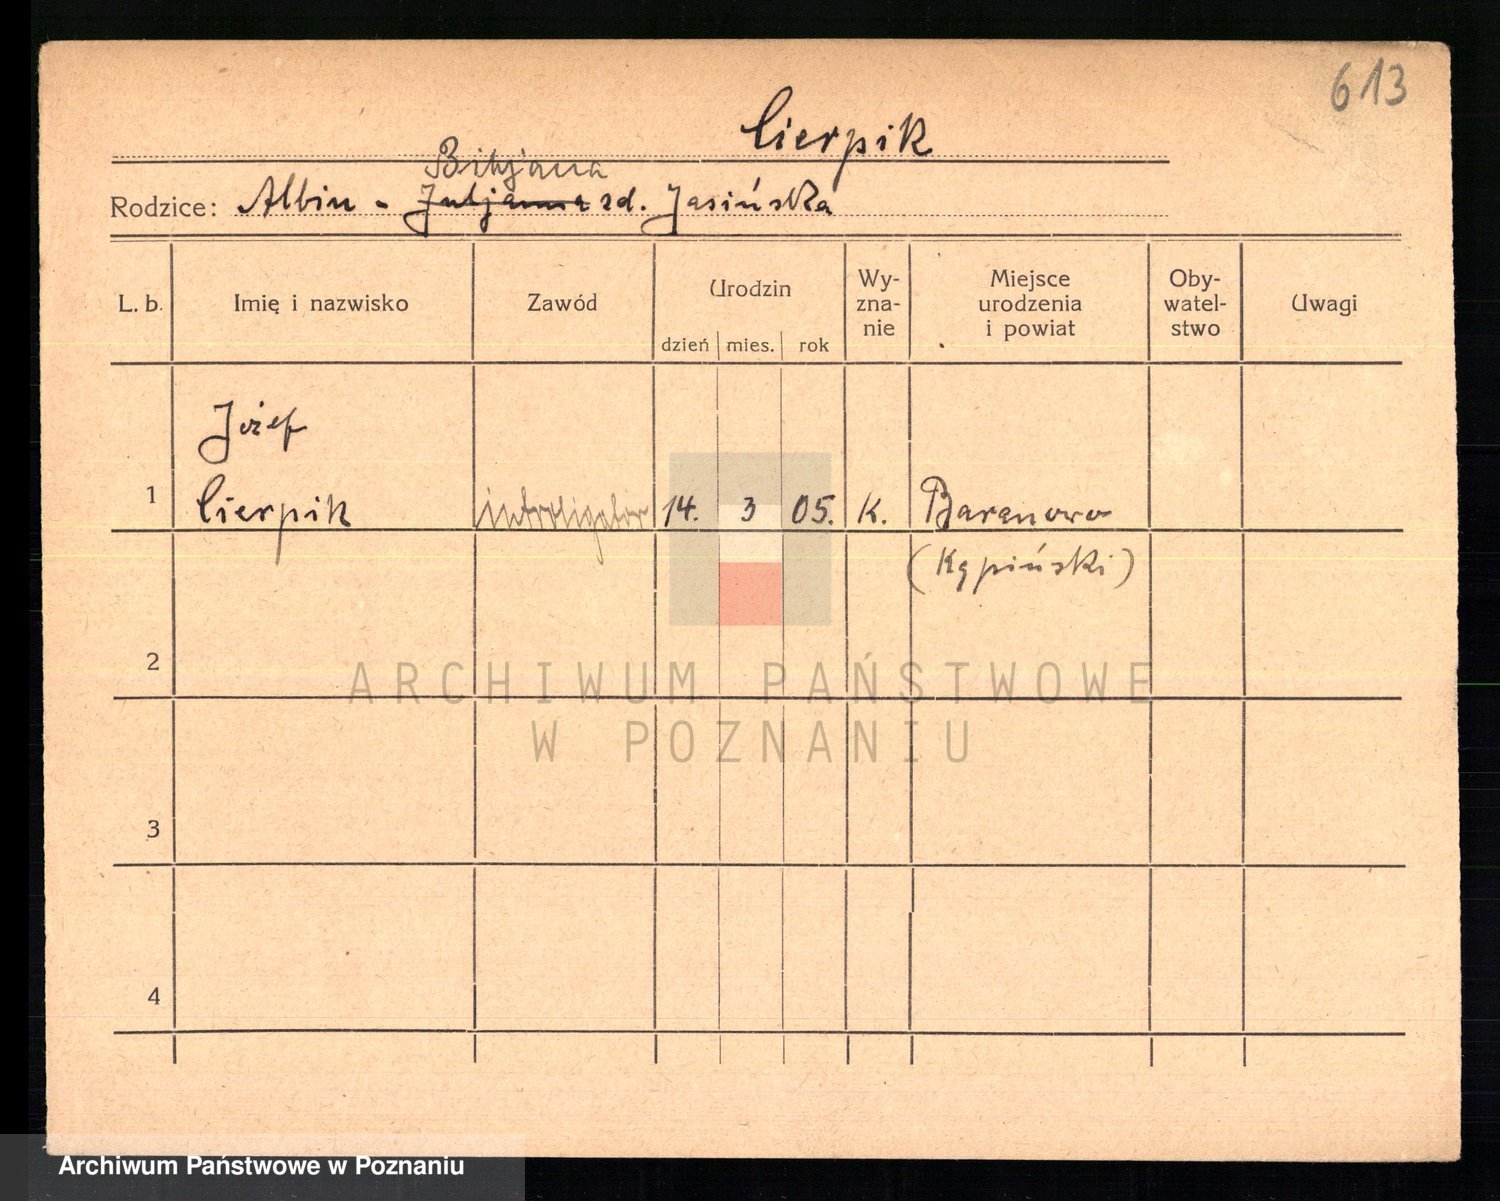 613
Cierpik
Bibjana
Rodzice: Albin - Juljanna zd. Jasińska
L. b. Imię i nazwisko Zawód Urodzin dzień mies. rok Wy-zna-nie Miejsce urodzenia i powiat Oby-watel-stwo Uwagi
Józef
1 Cierpik introligator 14. 3 05. K. Baranowo
(Kępiński)
2
ARCHIWUM PAŃSTWOWE
W POZNANIU
3
4
Archiwum Państwowe w Poznaniu